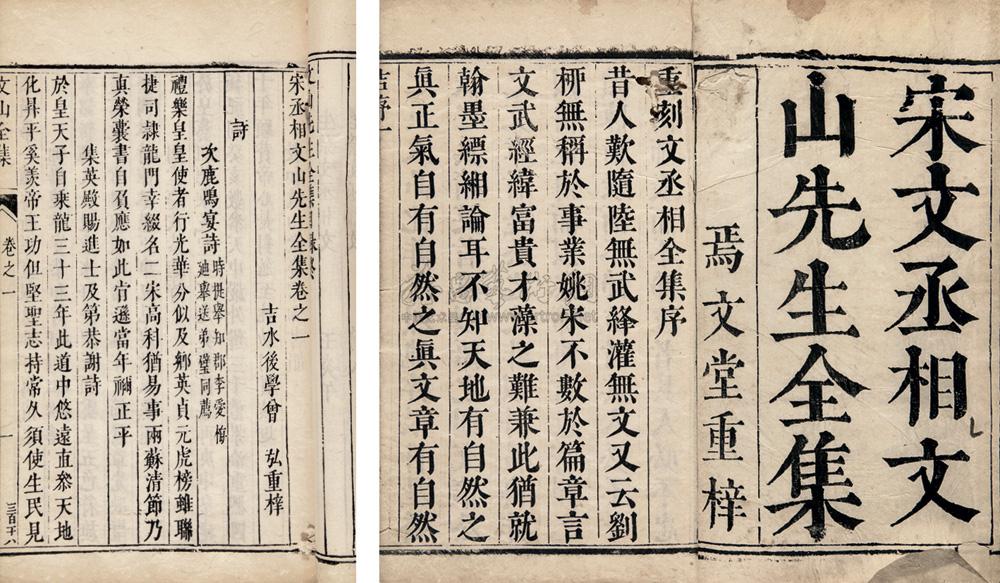 宋文丞相文
山先生全集
焉文堂重梓
重刻文丞相全集序
昔人歎隨陸無武絳灌無文又云劉
栁無稱於事業姚宋不數於篇章言
文武經緯富貴才藻之難兼此猶就
翰墨縹緗論耳不知天地有自然之
眞正氣自有自然之眞文章有自然
序一
宋丞相文山先生全集卷之一
吉水後學曾 弘重梓
詩
次鹿鳴宴詩
時提舉知郡李愛梅
迪舉送弟璧同薦
禮樂皇皇使者行光華分似及鄉英貞元虎榜雖聯
捷司隸龍門幸綴名二宋高科猶易事兩蘇清節乃
真榮囊書自負應如此肯遜當年禰正平
集英殿賜進士及第恭謝詩
於皇天子自乘龍三十三年此道中悠遠直叅天地
化昇平奚羡帝王功但堅聖志持常久須使生民見
文山全集 卷之一 一